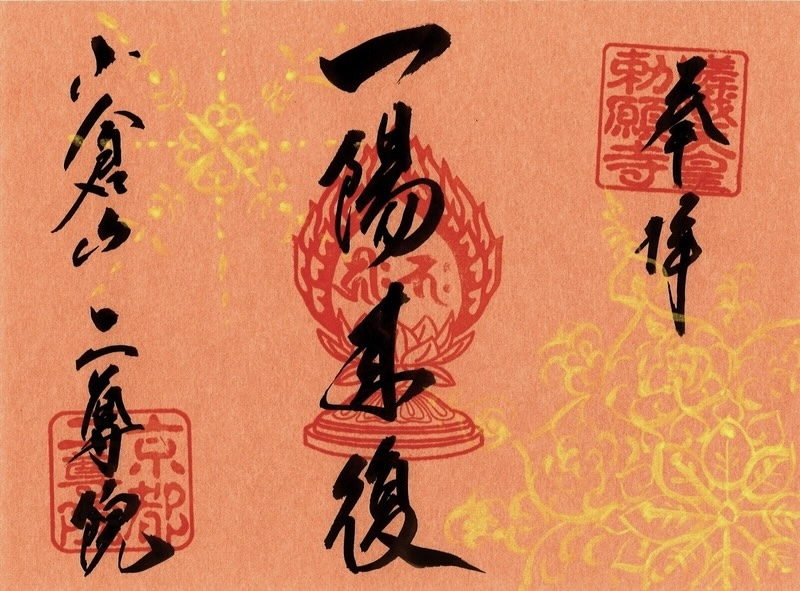 奉拝
嵯峨天皇
勅願寺
一陽来復
小倉山
二尊院
京都
二尊院